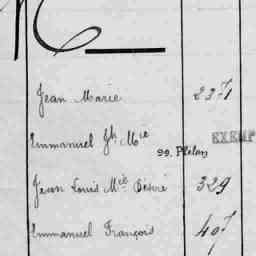 Jean Marie 2371
Emmanuel Jh Mie EXEMP
99. Plélan
Jean Louis Mie Désiré 329
Emmanuel François 407